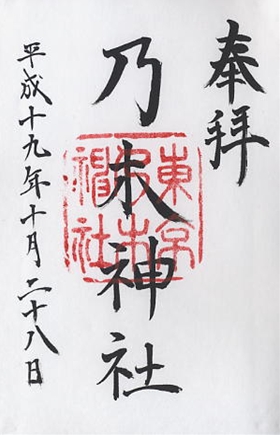 奉拝
乃木神社
平成十九年十月二十八日
東京
乃木
神社